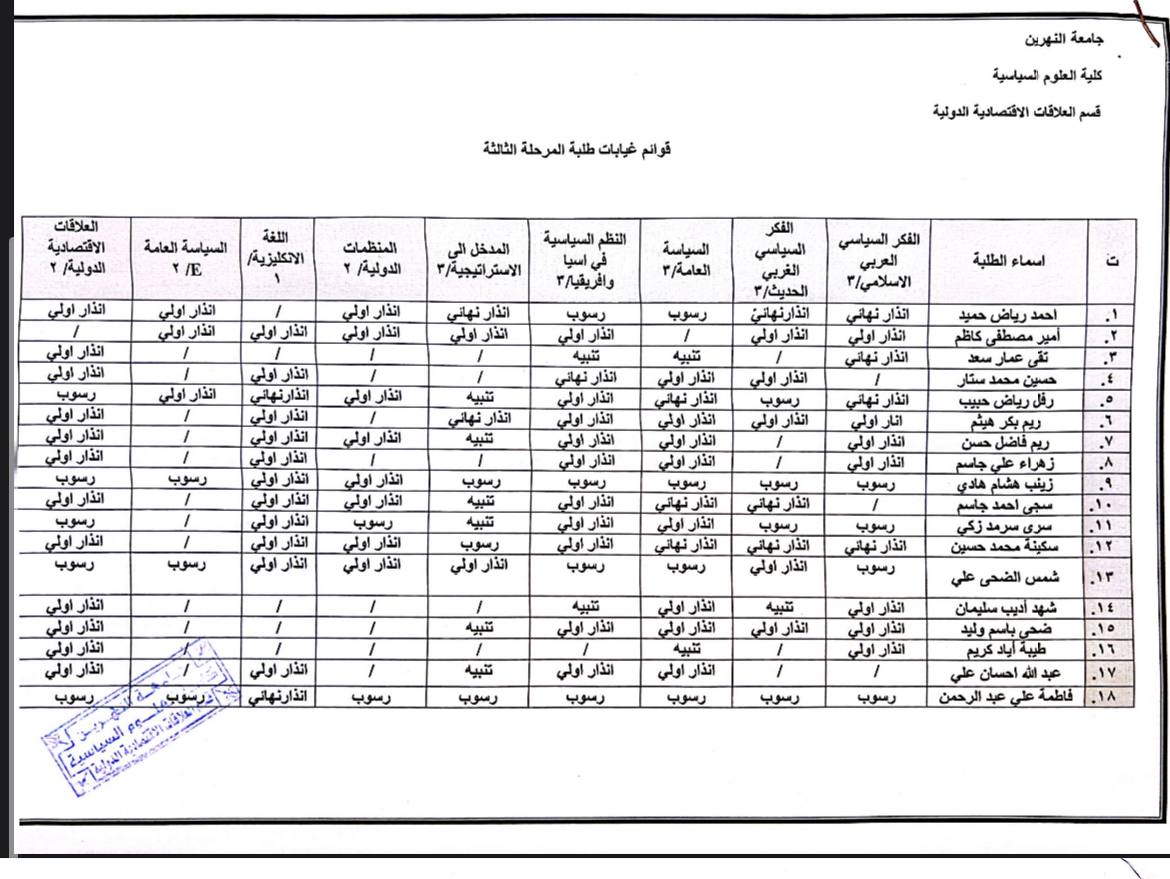 جامعة النهرين
كلية العلوم السياسية
قسم العلاقات الاقتصادية الدولية
قوائم غيابات طلبة المرحلة الثالثة
ت | اسماء الطلبة | الفكر السياسي العربي الاسلامي/٣ | الفكر السياسي الغربي الحديث/٣ | السياسة العامة/٣ | النظم السياسية في اسيا وافريقيا/٣ | المدخل الى الاستراتيجية/٣ | المنظمات الدولية/ ٢ | اللغة الانكليزية/ ١ | السياسة العامة E/ ٢ | العلاقات الاقتصادية الدولية/ ٢
١. | احمد رياض حميد | انذار نهائي | انذارنهائي | رسوب | رسوب | انذار نهائي | انذار اولي | / | انذار اولي | انذار اولي
٢. | أمير مصطفى كاظم | انذار اولي | انذار اولي | / | انذار اولي | انذار اولي | انذار اولي | انذار اولي | انذار اولي | /
٣. | تقى عمار سعد | انذار نهائي | / | تنبيه | تنبيه | / | / | / | / | انذار اولي
٤. | حسين محمد ستار | / | انذار اولي | انذار اولي | انذار نهائي | / | / | انذار اولي | / | انذار اولي
٥. | رفل رياض حبيب | انذار نهائي | رسوب | انذار نهائي | انذار اولي | تنبيه | انذار اولي | انذارنهائي | انذار اولي | رسوب
٦. | ريم بكر هيثم | انار اولي | انذار اولي | انذار اولي | انذار اولي | انذار نهائي | / | انذار اولي | / | انذار اولي
٧. | ريم فاضل حسن | انذار اولي | / | انذار اولي | انذار اولي | تنبيه | انذار اولي | انذار اولي | / | انذار اولي
٨. | زهراء علي جاسم | انذار اولي | / | انذار اولي | انذار اولي | / | / | انذار اولي | / | انذار اولي
٩. | زينب هشام هادي | رسوب | رسوب | رسوب | رسوب | رسوب | انذار اولي | انذار اولي | رسوب | رسوب
١٠. | سجى احمد جاسم | / | انذار نهائي | انذار نهائي | انذار اولي | تنبيه | انذار اولي | انذار اولي | / | انذار اولي
١١. | سرى سرمد زكي | رسوب | رسوب | انذار اولي | انذار اولي | تنبيه | رسوب | انذار اولي | / | رسوب
١٢. | سكينة محمد حسين | انذار نهائي | انذار نهائي | انذار نهائي | انذار اولي | رسوب | انذار اولي | انذار اولي | / | انذار اولي
١٣. | شمس الضحى علي | رسوب | انذار اولي | رسوب | رسوب | انذار اولي | انذار اولي | انذار اولي | رسوب | رسوب
١٤. | شهد أديب سليمان | انذار اولي | تنبيه | انذار اولي | تنبيه | / | / | / | / | انذار اولي
١٥. | ضحى باسم وليد | انذار اولي | انذار اولي | انذار اولي | انذار اولي | تنبيه | / | / | / | انذار اولي
١٦. | طيبة أياد كريم | انذار اولي | / | تنبيه | / | / | / | / | / | انذار اولي
١٧. | عبد الله احسان علي | / | / | انذار اولي | انذار اولي | تنبيه | / | انذار اولي | / | انذار اولي
١٨. | فاطمة علي عبد الرحمن | رسوب | رسوب | رسوب | رسوب | رسوب | رسوب | انذارنهائي | رسوب | رسوب
جامعة النهرين
العلوم السياسية
قسم العلاقات الاقتصادية الدولية